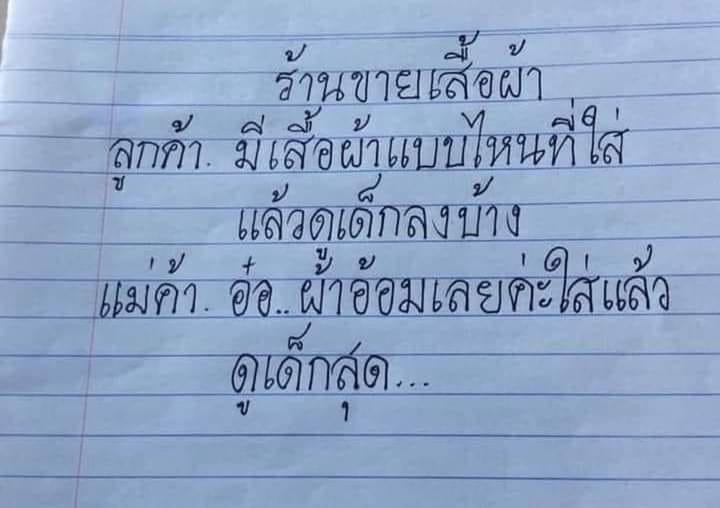 ร้านขายเสื้อผ้า
ลูกค้า. มีเสื้อผ้าแบบไหนที่ใส่
แล้วดูเด็กลงบ้าง
แม่ค้า. อ๋อ.. ผ้าอ้อมเลยค่ะใส่แล้ว
ดูเด็กสุด...